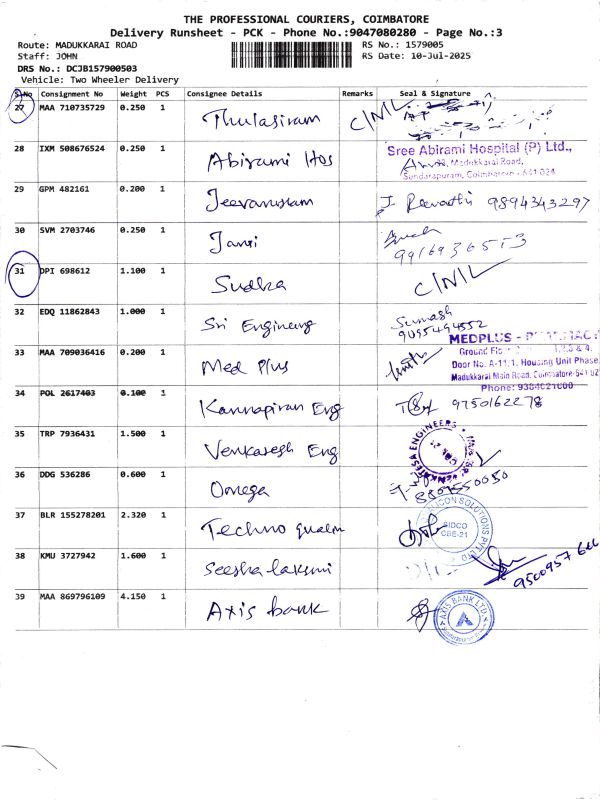 THE PROFESSIONAL COURIERS, COIMBATORE
Delivery Runsheet - PCK - Phone No.:9047080280 - Page No.:3
Route: MADUKKARAI ROAD RS No.: 1579005
Staff: JOHN RS Date: 10-Jul-2025
DRS No.: DCJB157900503
Vehicle: Two Wheeler Delivery
S.No Consignment No Weight PCS Consignee Details Remarks Seal & Signature
27 MAA 710735729 0.250 1 Thulasiram C/N/L
28 IXM 508676524 0.250 1 Abirami Hos Sree Abirami Hospital (P) Ltd.,
Madukkarai Road,
Sundarapuram, Coimbatore - 641 024
29 GPM 482161 0.200 1 Jeevanusam J. Revathi 9894343297
30 SVM 2703746 0.250 1 Janvi
9916936513
31 DPI 698612 1.100 1 Sudha C/N/L
32 EDQ 11862843 1.000 1 Sri Engineng Sumash
9095494552
33 MAA 709036416 0.200 1 Med Plus MEDPLUS - PHARMACY
Ground Floor
Door No. A-11,1. Housing Unit Phase
Madukkarai Main Road, Coimbatore-641 02
Phone: 9384021000
34 POL 2617403 0.100 1 Kannapiran Eng 9750162278
35 TRP 7936431 1.500 1 Venkatesh Eng VENKATESA ENGINEERS
36 DDG 536286 0.600 1 Omega
8807550050
37 BLR 155278201 2.320 1 Techno qualm SILICON SOLUTIONS PVT LTD
SIDCO
CBE-21
38 KMU 3727942 1.600 1 Seesha laksmi
9500957
39 MAA 869796109 4.150 1 Axis bank AXIS BANK LTD.